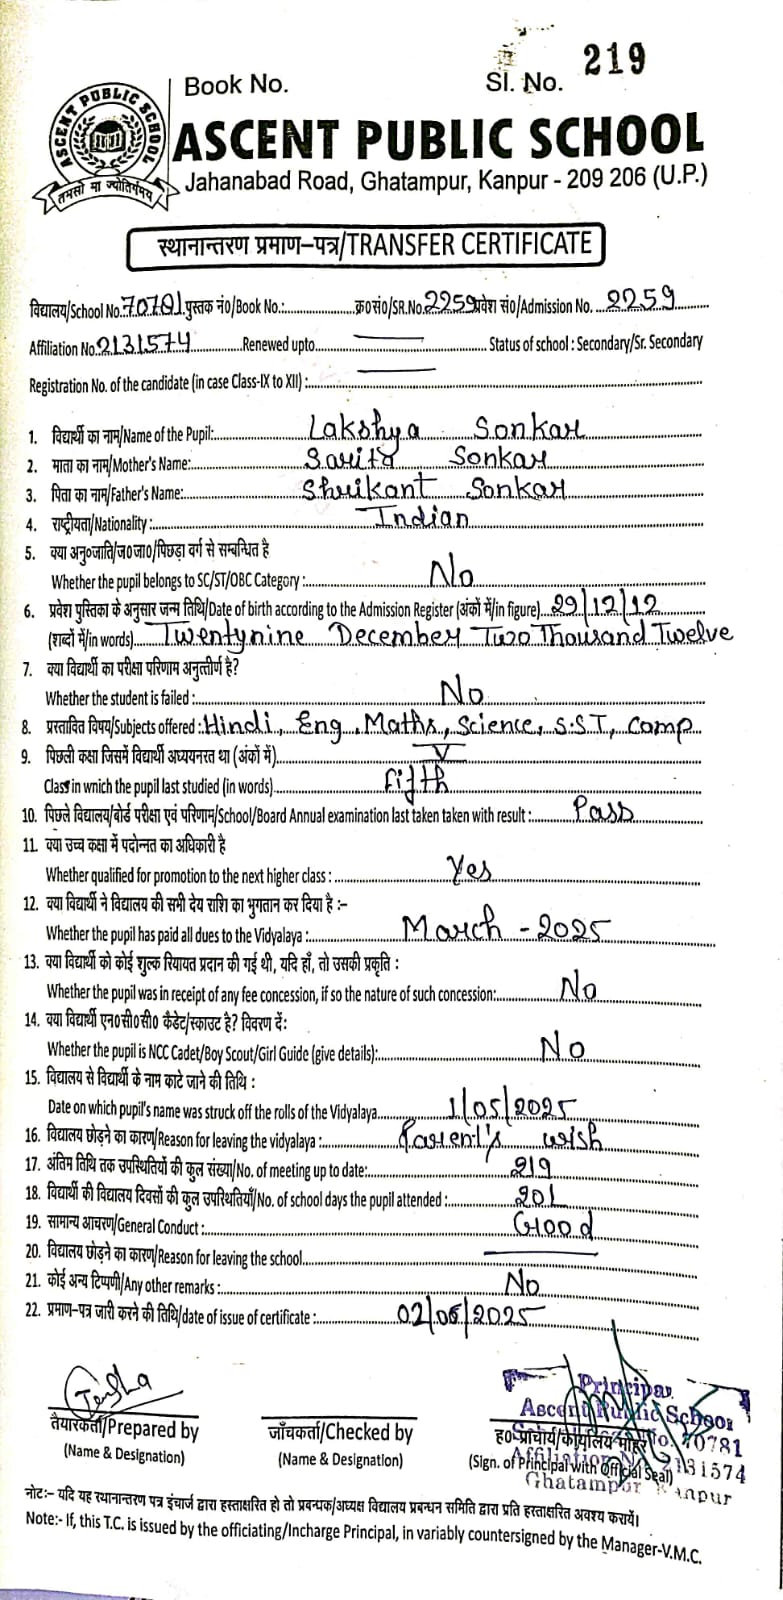 219
Book No. Sl. No.
ASCENT PUBLIC SCHOOL
तमसो मा ज्योतिर्गमय
ASCENT PUBLIC SCHOOL
Jahanabad Road, Ghatampur, Kanpur - 209 206 (U.P.)
स्थानान्तरण प्रमाण-पत्र/TRANSFER CERTIFICATE
विद्यालय/School No. 70781 पुस्तक नं0/Book No.: क्र0सं0/SR.No. 2259 प्रवेश सं0/Admission No. 2259
Affiliation No. 2131574 Renewed upto Status of school : Secondary/Sr. Secondary
Registration No. of the candidate (in case Class-IX to XII) :
1. विद्यार्थी का नाम/Name of the Pupil: Lakshya Sonkar
2. माता का नाम/Mother's Name: Sarita Sonkar
3. पिता का नाम/Father's Name: Shrikant Sonkar
4. राष्ट्रीयता/Nationality : Indian
5. क्या अनु0जाति/ज0जा0/पिछड़ा वर्ग से सम्बन्धित है
Whether the pupil belongs to SC/ST/OBC Category : No
6. प्रवेश पुस्तिका के अनुसार जन्म तिथि/Date of birth according to the Admission Register (अंकों में/in figure) 29/12/12
(शब्दों में/in words) Twentynine December Two Thousand Twelve
7. क्या विद्यार्थी का परीक्षा परिणाम अनुत्तीर्ण है?
Whether the student is failed : No
8. प्रस्तावित विषय/Subjects offered : Hindi, Eng, Maths, Science, S.S.T, Comp
9. पिछली कक्षा जिसमें विद्यार्थी अध्ययनरत था (अंकों में) V
Class in which the pupil last studied (in words) Fifth
10. पिछले विद्यालय/बोर्ड परीक्षा एवं परिणाम/School/Board Annual examination last taken taken with result : Pass
11. क्या उच्च कक्षा में पदोन्नत का अधिकारी है
Whether qualified for promotion to the next higher class : Yes
12. क्या विद्यार्थी ने विद्यालय की सभी देय राशि का भुगतान कर दिया है :-
Whether the pupil has paid all dues to the Vidyalaya : March - 2025
13. क्या विद्यार्थी को कोई शुल्क रियायत प्रदान की गई थी, यदि हाँ, तो उसकी प्रकृति :
Whether the pupil was in receipt of any fee concession, if so the nature of such concession: No
14. क्या विद्यार्थी एन0सी0सी0 कैडेट/स्काउट है? विवरण दें:
Whether the pupil is NCC Cadet/Boy Scout/Girl Guide (give details): No
15. विद्यालय से विद्यार्थी के नाम काटे जाने की तिथि :
Date on which pupil's name was struck off the rolls of the Vidyalaya 1/05/2025
16. विद्यालय छोड़ने का कारण/Reason for leaving the vidyalaya : Parent's wish
17. अंतिम तिथि तक उपस्थितियों की कुल संख्या/No. of meeting up to date: 219
18. विद्यार्थी की विद्यालय दिवसों की कुल उपस्थितियाँ/No. of school days the pupil attended : 201
19. सामान्य आचरण/General Conduct : Good
20. विद्यालय छोड़ने का कारण/Reason for leaving the school
21. कोई अन्य टिप्पणी/Any other remarks : No
22. प्रमाण-पत्र जारी करने की तिथि/date of issue of certificate : 02/05/2025
Principal
Ascent Public School
70781
2131574
Ghatampur Kanpur
तैयारकर्ता/Prepared by जाँचकर्ता/Checked by ह0 प्राचार्य/कार्यालय मोहर
(Name & Designation) (Name & Designation) (Sign. of Principal with Official Seal)
नोटः- यदि यह स्थानान्तरण पत्र इंचार्ज द्वारा हस्ताक्षरित हो तो प्रबन्धक/अध्यक्ष विद्यालय प्रबन्धन समिति द्वारा प्रति हस्ताक्षरित अवश्य करायें।
Note:- If, this T.C. is issued by the officiating/Incharge Principal, in variably countersigned by the Manager-V.M.C.